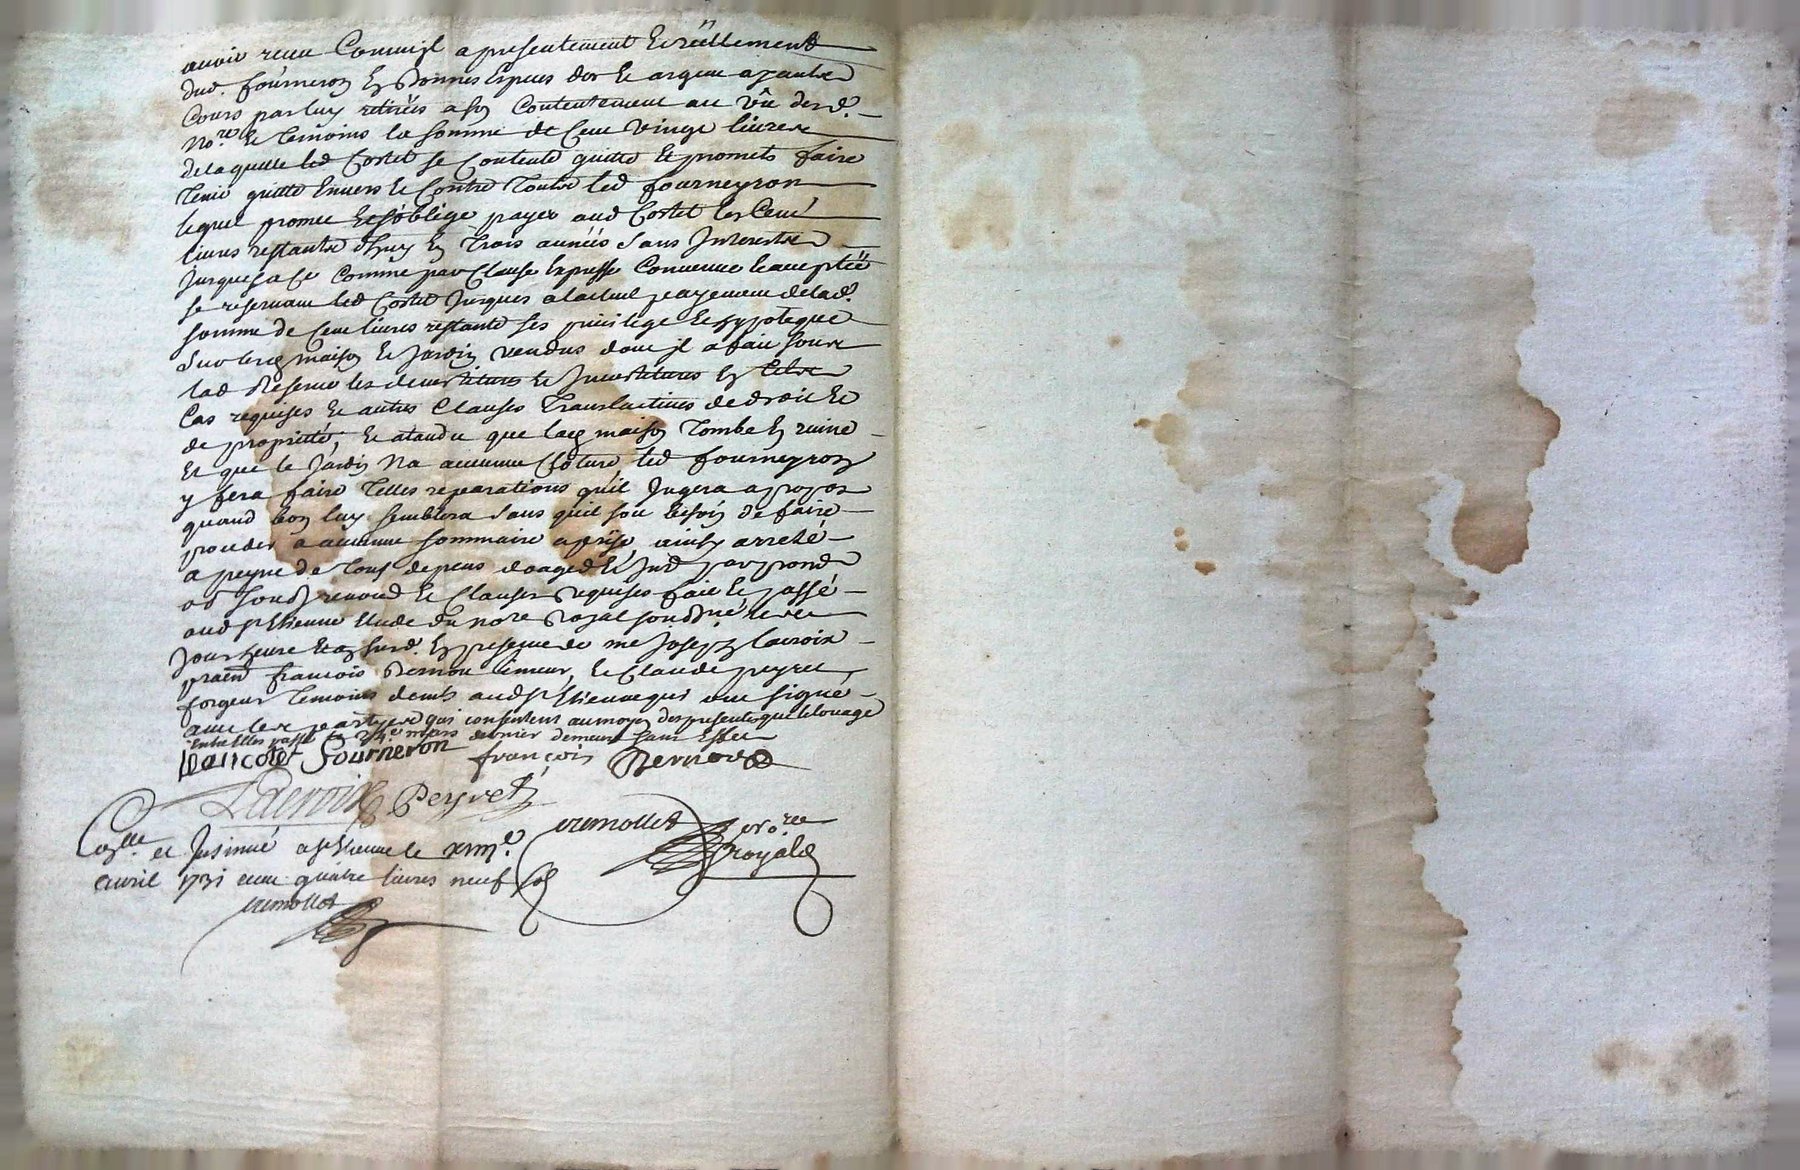 avoir receu comme jl a presentement et réellement
dud. fourneron en bonnes Especes dor et argent ayantes
Cours par luy retirées a son Contentement au vûe desd.
no.re et temoins la somme de Cent vingt livres
de laquelle led Costet se Contente quitte et promets faire
tenir quitte Envers et Contre toutes led fourneyron
lequel promet et soblige payer aud Costet les Cent
livres restantes dhuy En trois années sans Interestes
Jusques a ce comme par Clause Expresse Convenue et acceptée
se reservant led Costet Jusques a lactuel payement de lad.
somme de Cent livres restante ses privilege et hypoteque
sur maison et Jardin vendus dont jl a fait sous
lad Reserve les devestitures et Jnvestitures En telse
Cas requises et autres Clauses Translactives de droit et
de proprietté, et atandu que maison tombe En ruine
et que le Jardin na aucune Cloture led fourneyron
y fera faire telles reparations quil Jugera a propos
quand bon luy semblera sans quil soit besoin de faire
proceder a aucune sommaire aprise, ainsy arreté
a peyne de tous depens domages et Int par
renond et Clauses Requises fait et passé
aud St Etienne Etude du nore Royal soussigné
Jour heure et an surd. En presence de me Joseph Lacroix
praen francois Bernou limeur, et Claude peyret
forgeur temoins dents aud St Etienne qui ont signé
avec les partyes qui consentent au moyen des presentes que le louage
entre Elles passé le 24e mars dernier demeure sans Effet
Jean coste fourneron francois Bernou
Lacroix Peyret
cremollet no.re
royal
Con.lle et Jnsinué a St Etienne le xviije.
avril 1731 receu quatre livres neuf sols
cremollet